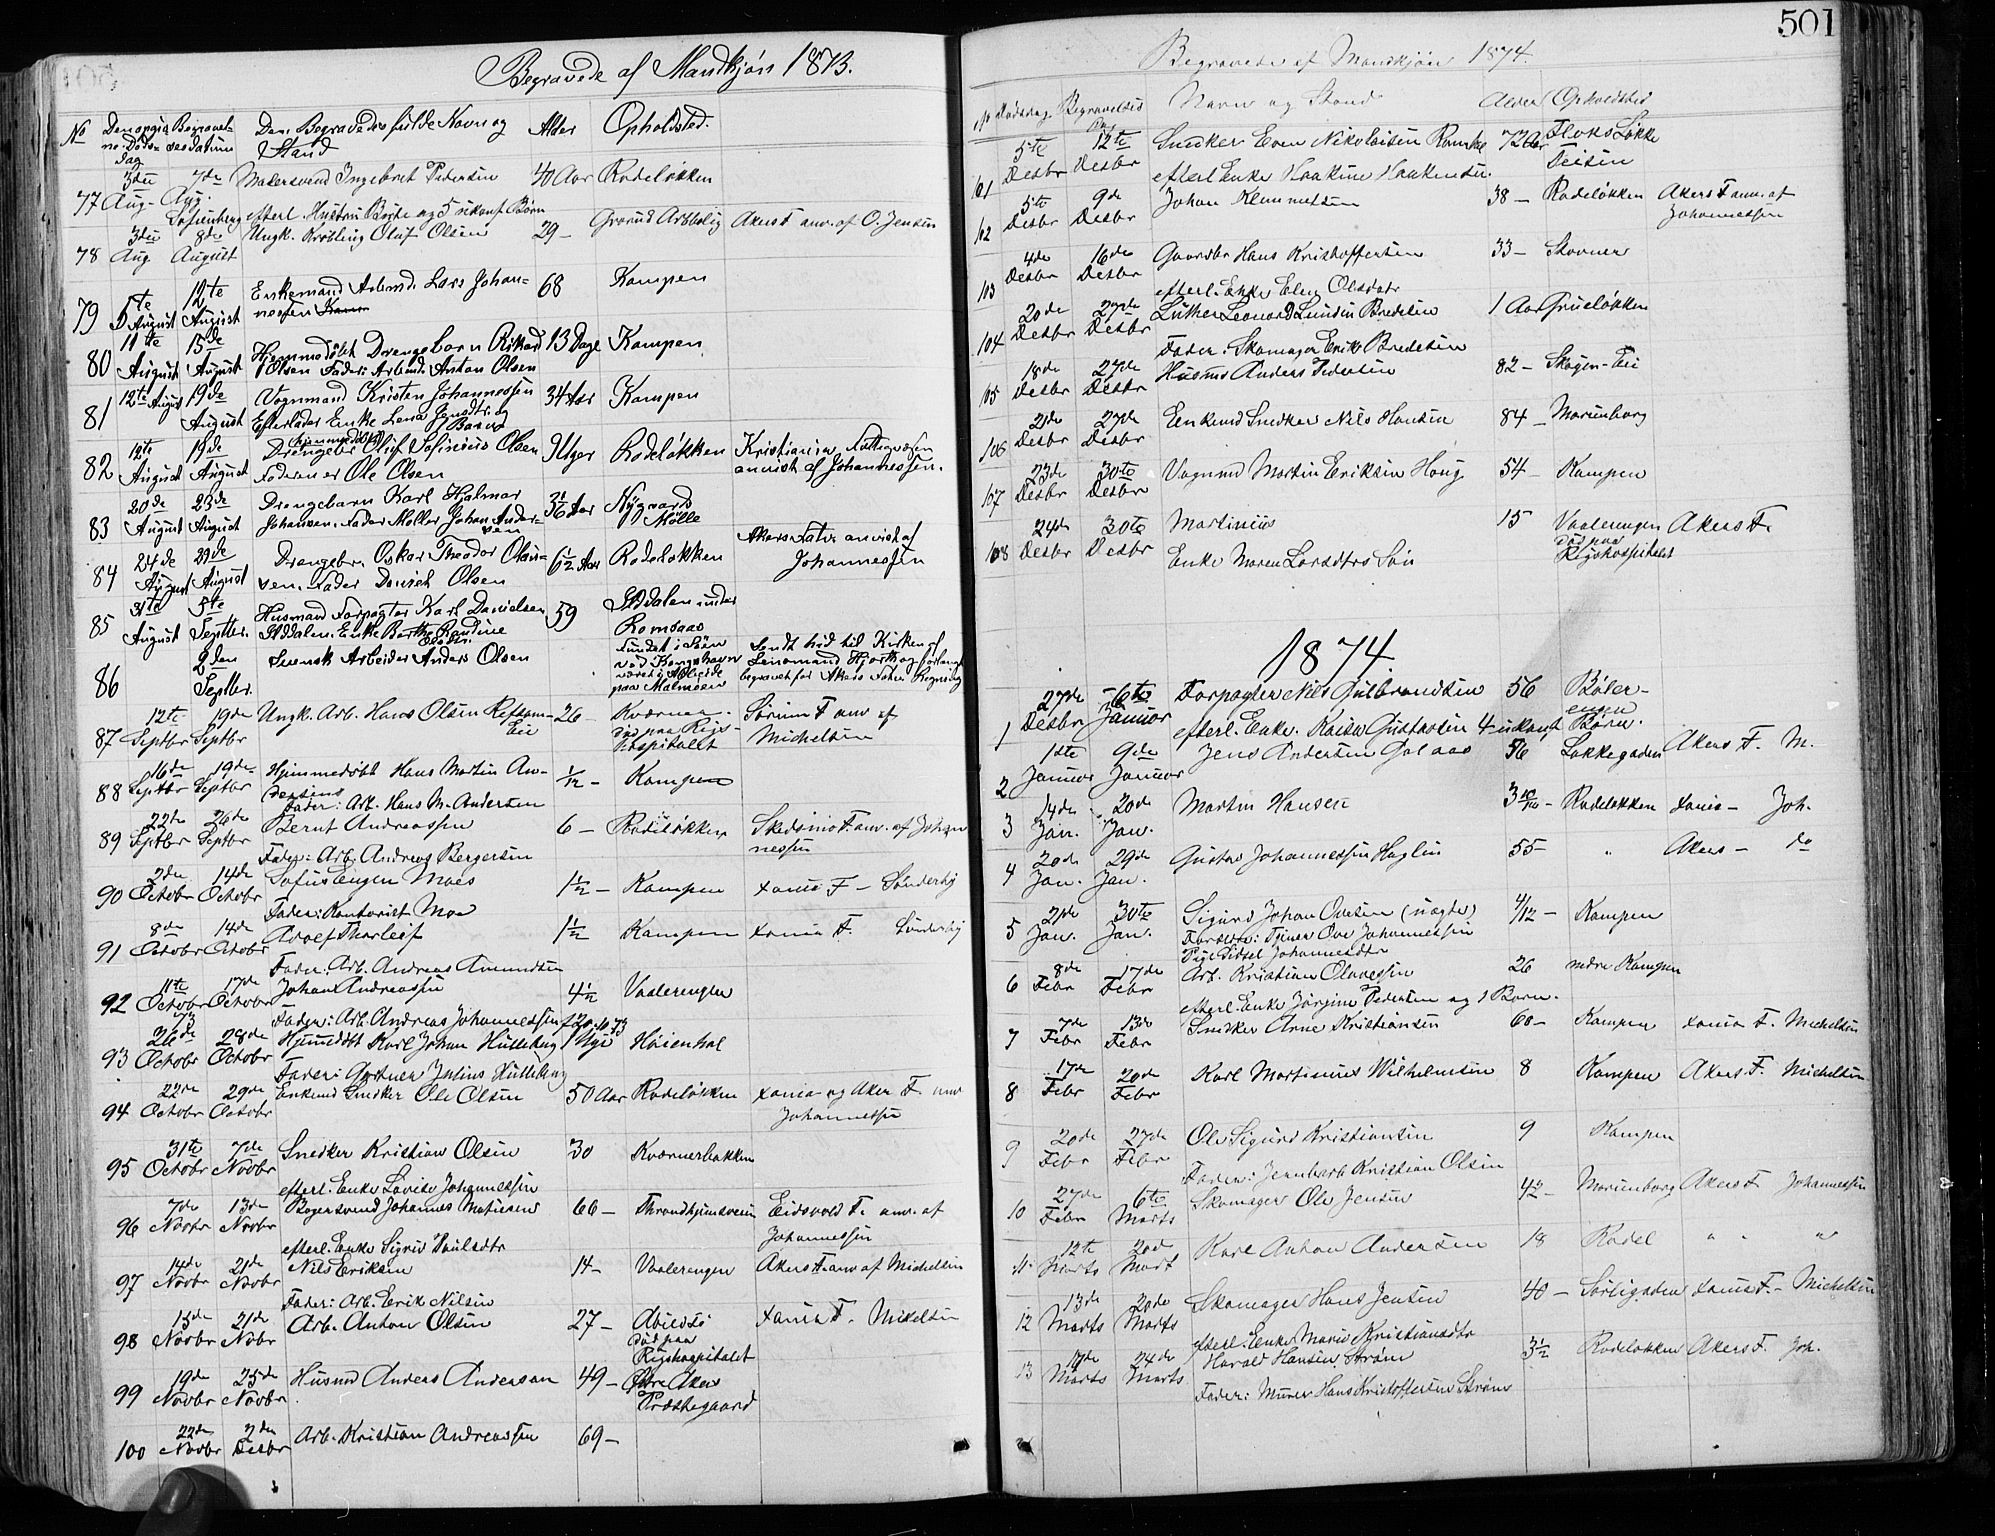 501
Begravede af Mandkjøn 1873.
No
Den Begravedes fulde Navn og Stand
Alder
Opholdsted.
77 3die Aug. 7de Aug. Malersvend Ingebret Pedersen 40 Aar Rodeløkken
efterl. Hustru og 5 ukonf. Børn
78 3die Aug. 8de August Ungk. Olaf Olsen 29 – Grorud Arbbolig Akers F. anv. af O. Jensen
79 5te August 12te August Enkemand Arbmd. Lars Johannesen 68 Kampen
80 11te August 15de August Hjemmedøbt Drengebarn Rikard 13 Dage Kampen
Olsen Fader: Arbmd. Anton Olsen
81 12te August 19de August Vognmand Kristen Johannessen 34 Aar Kampen
Efterlader Enke Lena og Barn
82 12te August 19de August Drengebr. (hjemmedøbt) Oluf Sofinius Olsen 9 Uger Rodeløkken Kristiania Fattigvæsen
Faderen er Ole Olsen anvist af Johannessen.
83 20de August 23de August Drengebarn Karl Hjalmar Nygaards Mølle
Johansen. Fader Møller Johan Andersen
84 24de August 29de August Drengebr. Oskar Theodor Olausen. 6½ Aar Rodeløkken Akers Fattv. anvist af
Fader David Olsen Johannessen
85 31te August 5te Septbr. Husmand Forpagter Karl Danielsen 59 Stddalen under
Stddalen. Enke Berthe Romsaas
86 2den Septbr. Svensk Arbeider Anders Olsen Fundet i Søen Sendt hid til Kirken af
ved Kongshavn Lensmand Hjorth og forlangt
været i Arbeide begravet for Akers Fattv. Regning
paa Malmøen
87 12te Septbr 19de Septbr Ungk. Arb. Hans Olsen 26 – Kværner. Sørum F. anv. af
Eie død paa Rigshospitalet Michelsen
88 16de Septbr 19de Septbr Hjemmedøbt Hans Martin Andersens 1/12 – Kampen
Fader: Arb. Hans M. Andersen
89 22de Septbr 26de Septbr Bernt Andreassen 6 – Rodeløkken Skedsmo F. anv. af Johannessen
Fader: Arb. Andreas Bergersen
90 2den Octobr 14de Octobr Sofus Eugen Moes 1½ – Kampen Xania F – Sønderby
Fader: Kontorist Moe
91 8de Octobr 14de Octobr Adolf Thorleif 1½ Kampen Xania F. Sønderby
Fader: Arb. Andreas Amundsen
92 11te Octobr 17de Octobr Johan Andreassen 4½ Vaalerengen
Fader: Arb. Andreas Johannessen
93 26de Octobr 28de Octobr Hjemdøbt Karl Johan Hulleberg 1 Uge Høienhal
Fader: Gartner Julius Hulleberg
94 22de Octobr 29de Octobr Enkemd Snedker Ole Olsen 50 Aar Rodeløkken Xania og Aker F. anv
Johannessen
95 31te Octobr 7de Novbr Snedker Kristian Olsen 30 Kværnerbakken
efterl. Enke Lovise Johannessen
96 7de Novbr 13de Novbr Bagersvend Johannes Matisen 66 – Throndhjemsveien Eidsvold F. anv. af
efterl. Enke Sigrid Paulsdtr Johannessen
97 14de Novbr 21de Novbr Nils Eriksen 14 – Vaalerengen Akers F. anv af Michelsen
Fader: Arb. Erik Nilsen
98 15de Novbr 21de Novbr Arb. Anton Olsen 27 – Abildsø Xania F. Mikelsen
død paa Rigshospitalet
99 19de Novbr 25de Novbr Husmd Anders Andersen 49 – Østre Aker Præstegaard
100 22de Novbr 2den Desbr Arb. Kristian Andreassen 69 –
Begravede af Mandkjøn 1874.
No Dødsdag Begravelses Dag Navn og Stand Alder Opholdsted
101 5te Desbr 12te Desbr Snedker Even Nikolaisen 72 Aar Løkke
efterl. Enke Haakine Haakensen.
102 5te Desbr 9de Desbr Johan Klemmetsen 38 – Rodeløkken Akers F anv. af
Johannessen
103 4de Desbr 16de Desbr Gaardbr Hans Kristoffersen 33 – Stovner
efterl. Enke Elen Olsdatr
104 20de Desbr 27de Desbr Luther Leonard Lundin Bredesen 1 Aar Grueløkken
Fader: Skomager Erik Bredesen
105 18de Desbr 27de Desbr Husmd Anders Pedersen 82 – Skogen-Eie
106 21de Desbr 27de Desbr Enkemd Snedker Nils Hansen 84 – Marienborg
107 23de Desbr 30te Desbr Vognmd Martin Eriksen Haug 54 – Kampen
108 24de Desbr 30te Desbr Martinius 15 Vaalerengen Akers F.
Enke Maren Larsdtrs Søn død paa Rigshospitalet
1874.
1 27de Desbr 6te Januar Forpagter Nils Gulbrandsen 56 Bøler-
efterl. Enke. Gustavsen 4 ukonf. Børn.
2 1ste Januar 9de Januar Jens Andersen 56 Lakkegaden Akers F. M.
3 14de Jan. 20de Jan. Martin Hansen 3 10/12 – Rodeløkken Xania – Joh.
4 20de Jan. 29de Jan. Gustav Johannessen Haglin 55 – " Akers – do
5 21de Jan. 30te Jan. Sigurd Johan Ovesen (uægte) 4/12 – Kampen
Forældre: Tjener Ove Johannessen
Pige Sidsel Johannesdtr
6 8de Febr 17de Febr Arb. Kristian Olavessen 26 nedre Kampen
efterl. Enke Jørgine Pedersen og 1 Barn.
7 7de Febr 13de Febr Snedker Arne Kristiansen 60 – Kampen Xania F. Michelsen
8 17de Febr 20de Febr Karl Martinius Wilhelmsen 8 Kampen Akers F. Michelsen
9 20de Febr 27de Febr Ole Sigurd Kristiansen 9 Kampen
Fader: Jernbarb Kristian Olsen
10 27de Febr 6te Marts Skomager Ole Jensen 42 – Marienborg Akers F Johannessen
11 12te Marts 20de Mart Karl Anton Andersen 18 Rodel " " "
12 13de Marts 20de Marts Skomager Hans Jensen 40 – Sørligaden Xania F. – Michelsen
efterl. Enke Marie Kristiansdtr
13 17de Marts 24de Marts Harald Hansen Strøm 3½ Rodeløkken Akers F. Joh.
Fader: Murer Hans Kristoffersen Strøm